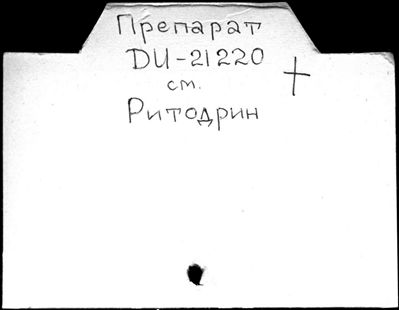 Препарат
DU-21220
см. +
Ритодрин